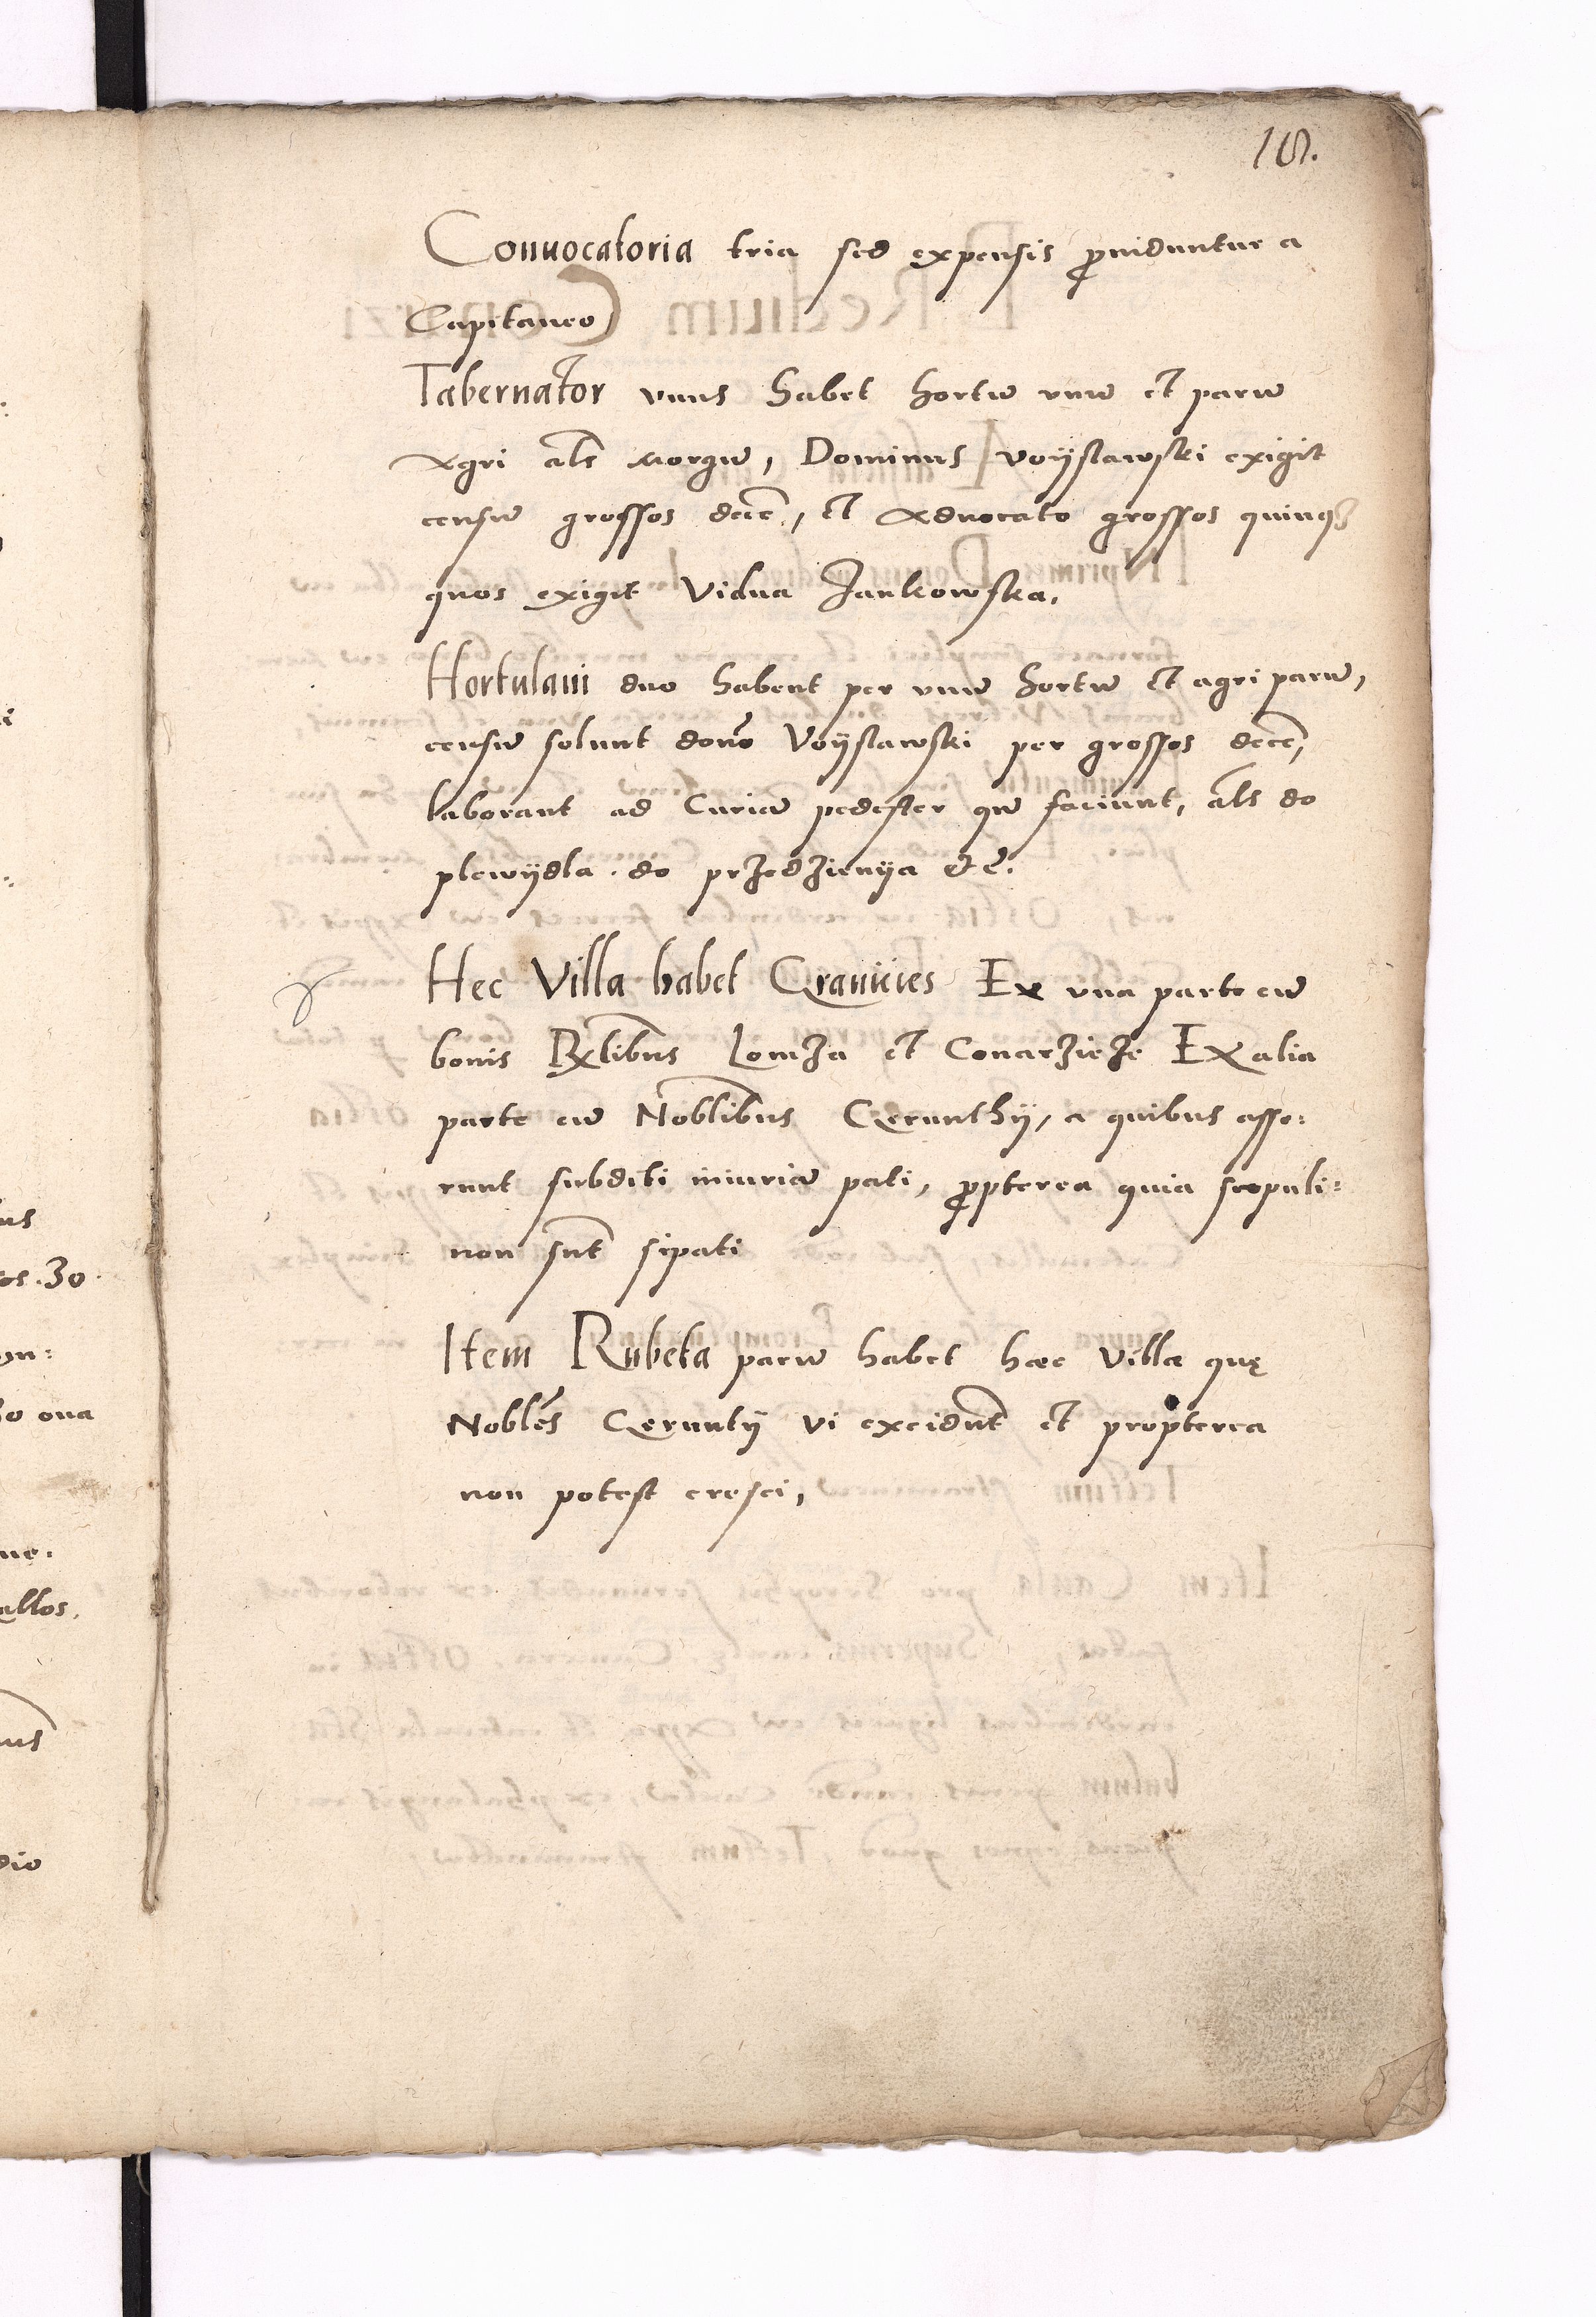 18.
Conuocatoria tria sed expensis ꝓuiduntur a
Capitaneo
Tabernator vnus habet hortū vnū et parū
Agri als morgū, Dominus Voÿslawski exigit
censū grossos decē, et Aduocato grossos quinqȝ
quos exigit Vidua Jankowska.
Hortulani duo habent per vnū hortū et agri parū,
censū soluunt domō Voÿslawski per grossos decē,
laborant ad Curiā pedester qū faciunt, als do
plewÿdla do przedzienÿa &c̄.
Hec Villa habet Granicies Ex vna parte cū
bonis Rxlibus Lomza et Conarzicze Ex alia
parte cū Noblibus Cerunthÿ, a quibus asse:
runt subditi iniuriā pati, ꝓpterea quia scopuli:
non sūt sipati
Item Rubeta parū habet haec Villa quę
Nobles Ceruntÿ vi excidūt et propterea
non potest cresci,
os .30
allos.